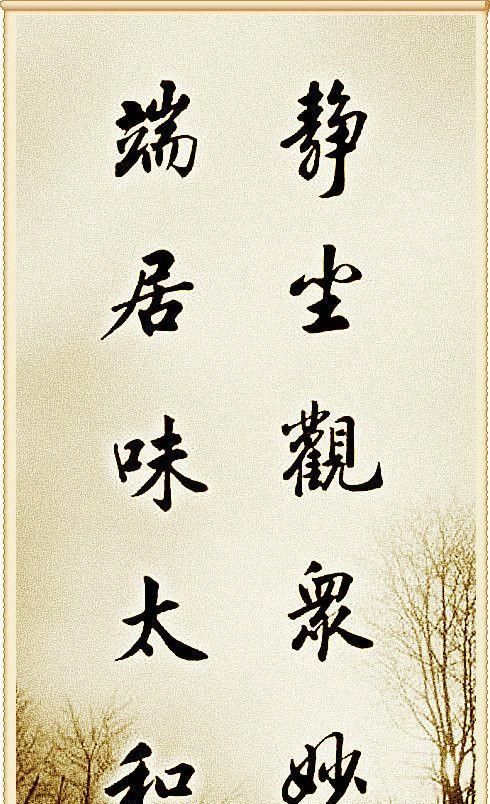 静坐觀衆妙
端居味太和